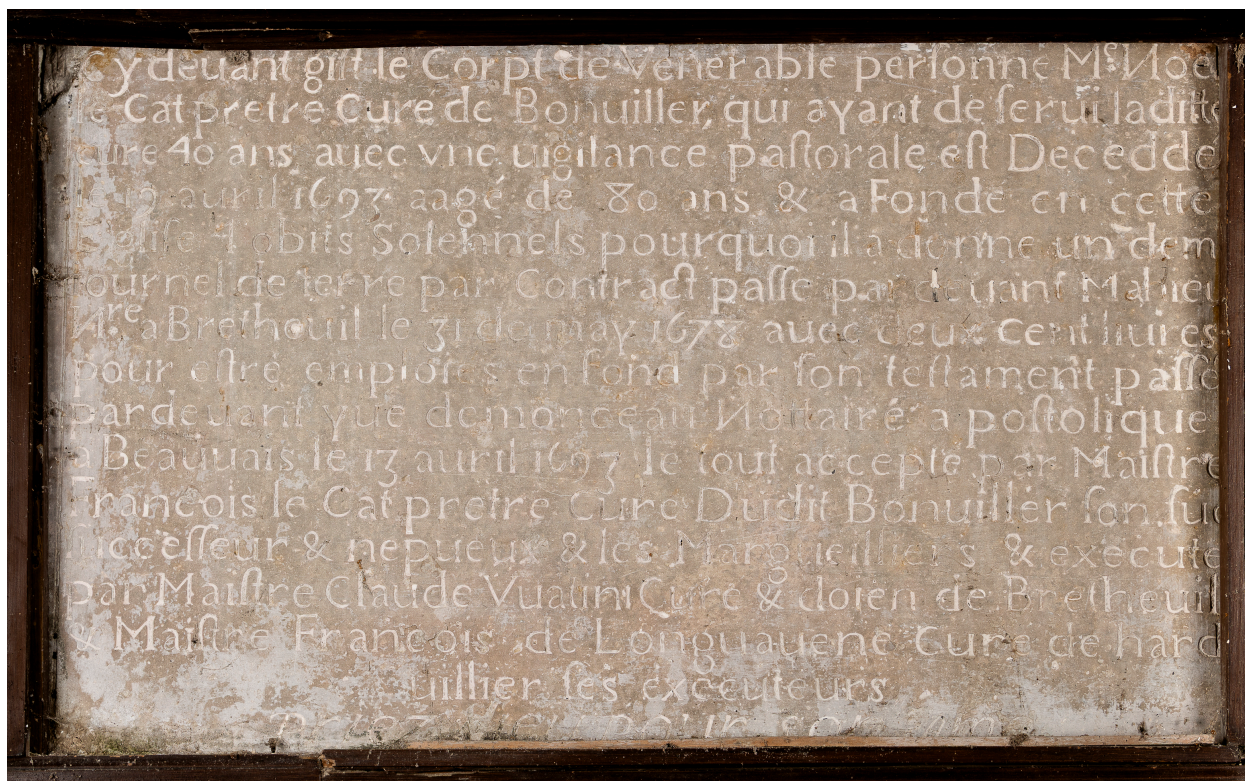 Cy deuant gist le Corps de Venerable personne Mre Noel
le Cat pretre Cure de Bonuiller, qui ayant de serui laditte
cure 40 ans auec vne uigilance pastorale est Decedde
le 9 auril 1693 aagé de 80 ans & a Fondé en cette
eglise 4 obiits Solennels pourquoi il a donne un demi
Journel de terre par Contract passe par deuant Mahieu
Nre a Bretheuil le 31 de may 1678 auec deux cent liures
pour estre emploies en fond par son testament passe
pardeuant yue demonceau Nottaire apostolique
a Beauuais le 13 auril 1693 le tout accepte par Maistre
Francois le Cat pretre cure Dudit Bonuiller son suc
uccesseur & nepueux & les Margueilliers & execute
par Maistre Claude Vuatin Cure & doien de Bretheuil
& Maistre Francois de Longuauene Cure de hard
uillier ses executeurs
POUR SON